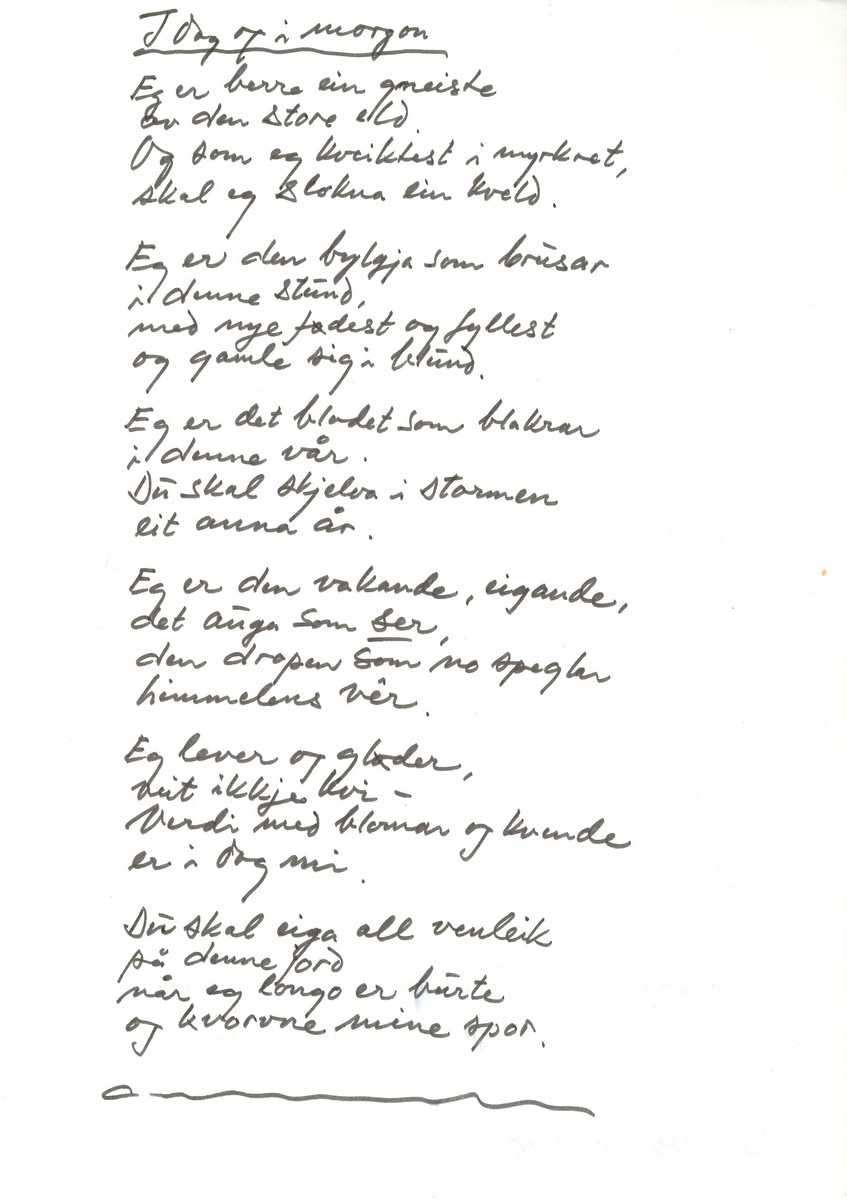 I dag og i morgon
Eg er berre ein gneiste
av den store eld.
Og som eg kveiktest i myrkret,
skal eg slokna ein kveld.
Eg er den bylgja som brusar
i denne stund,
med nye fødest og fyllest
og gamle sig i blund.
Eg er det bladet som blakrar
i denne vår.
Du skal skjelva i stormen
eit anna år.
Eg er den vakande, eigande,
det auga som ser,
den dropen som no speglar
himmelens vêr.
Eg lever og gløder,
veit ikkje kvi –
Verdi med blomar og kvende
er i dag mi.
Du skal eiga all venleik
på denne jord
når eg longo er burte
og kvorvne mine spor.